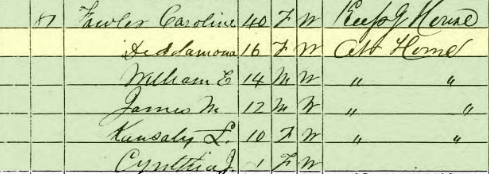 Fowler Caroline 40 F W Keep'g House
Deddamona 16 F W At Home
William E 14 M W " "
James M. 12 M W " "
Kansaly L. 10 F W " "
Cynthia J. 1 F W